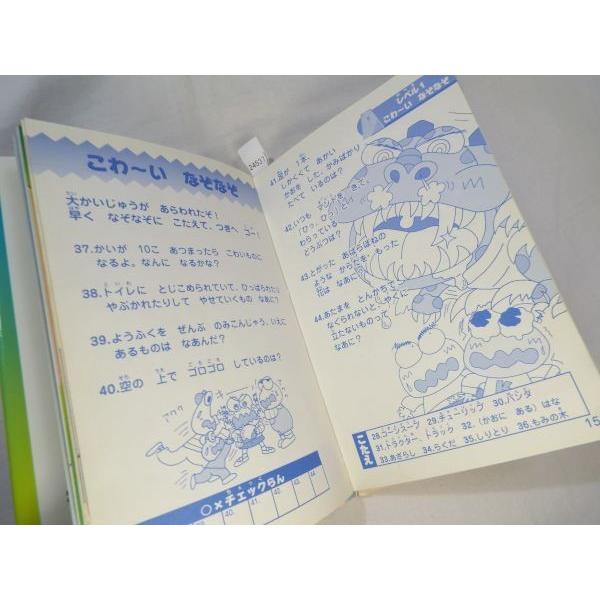 こわ〜い なぞなぞ
大かいじゅうが あらわれたぞ！
早く なぞなぞに こたえて、つぎへ ゴー！
37.かいが 10こ あつまったら こわいものに
なるよ。なんに なるかな？
38.トイレに とじこめられていて、ひっぱられたり
やぶかれたりして やせていくもの なあに？
39.ようふくを ぜんぶ のみこんじゃう、いえに
あるものは なあんだ？
40.空の 上で ゴロゴロ しているのは？
アワワ
○×チェックらん
40.
41.
42.
43.
44.
24537
レベル1
こわ〜い なぞなぞ
41.目が 1本、
しかくくて あかい
かおを した、かみばかり
たべて いるのは？
42.いつも
わらっている
どうぶつは？
43.とがった あばらぼねの
ような からだを もった
花は なあに？
44.あたまを とんかちで
なぐられないと、やくに
立たないものって
なあに？
こたえ
28.コーンスープ 29.チューリップ 30.パンダ
31.トラクター、トラック 32.（かおに ある）はな
33.あざらし 34.らくだ 35.しりとり 36.もみの木
15